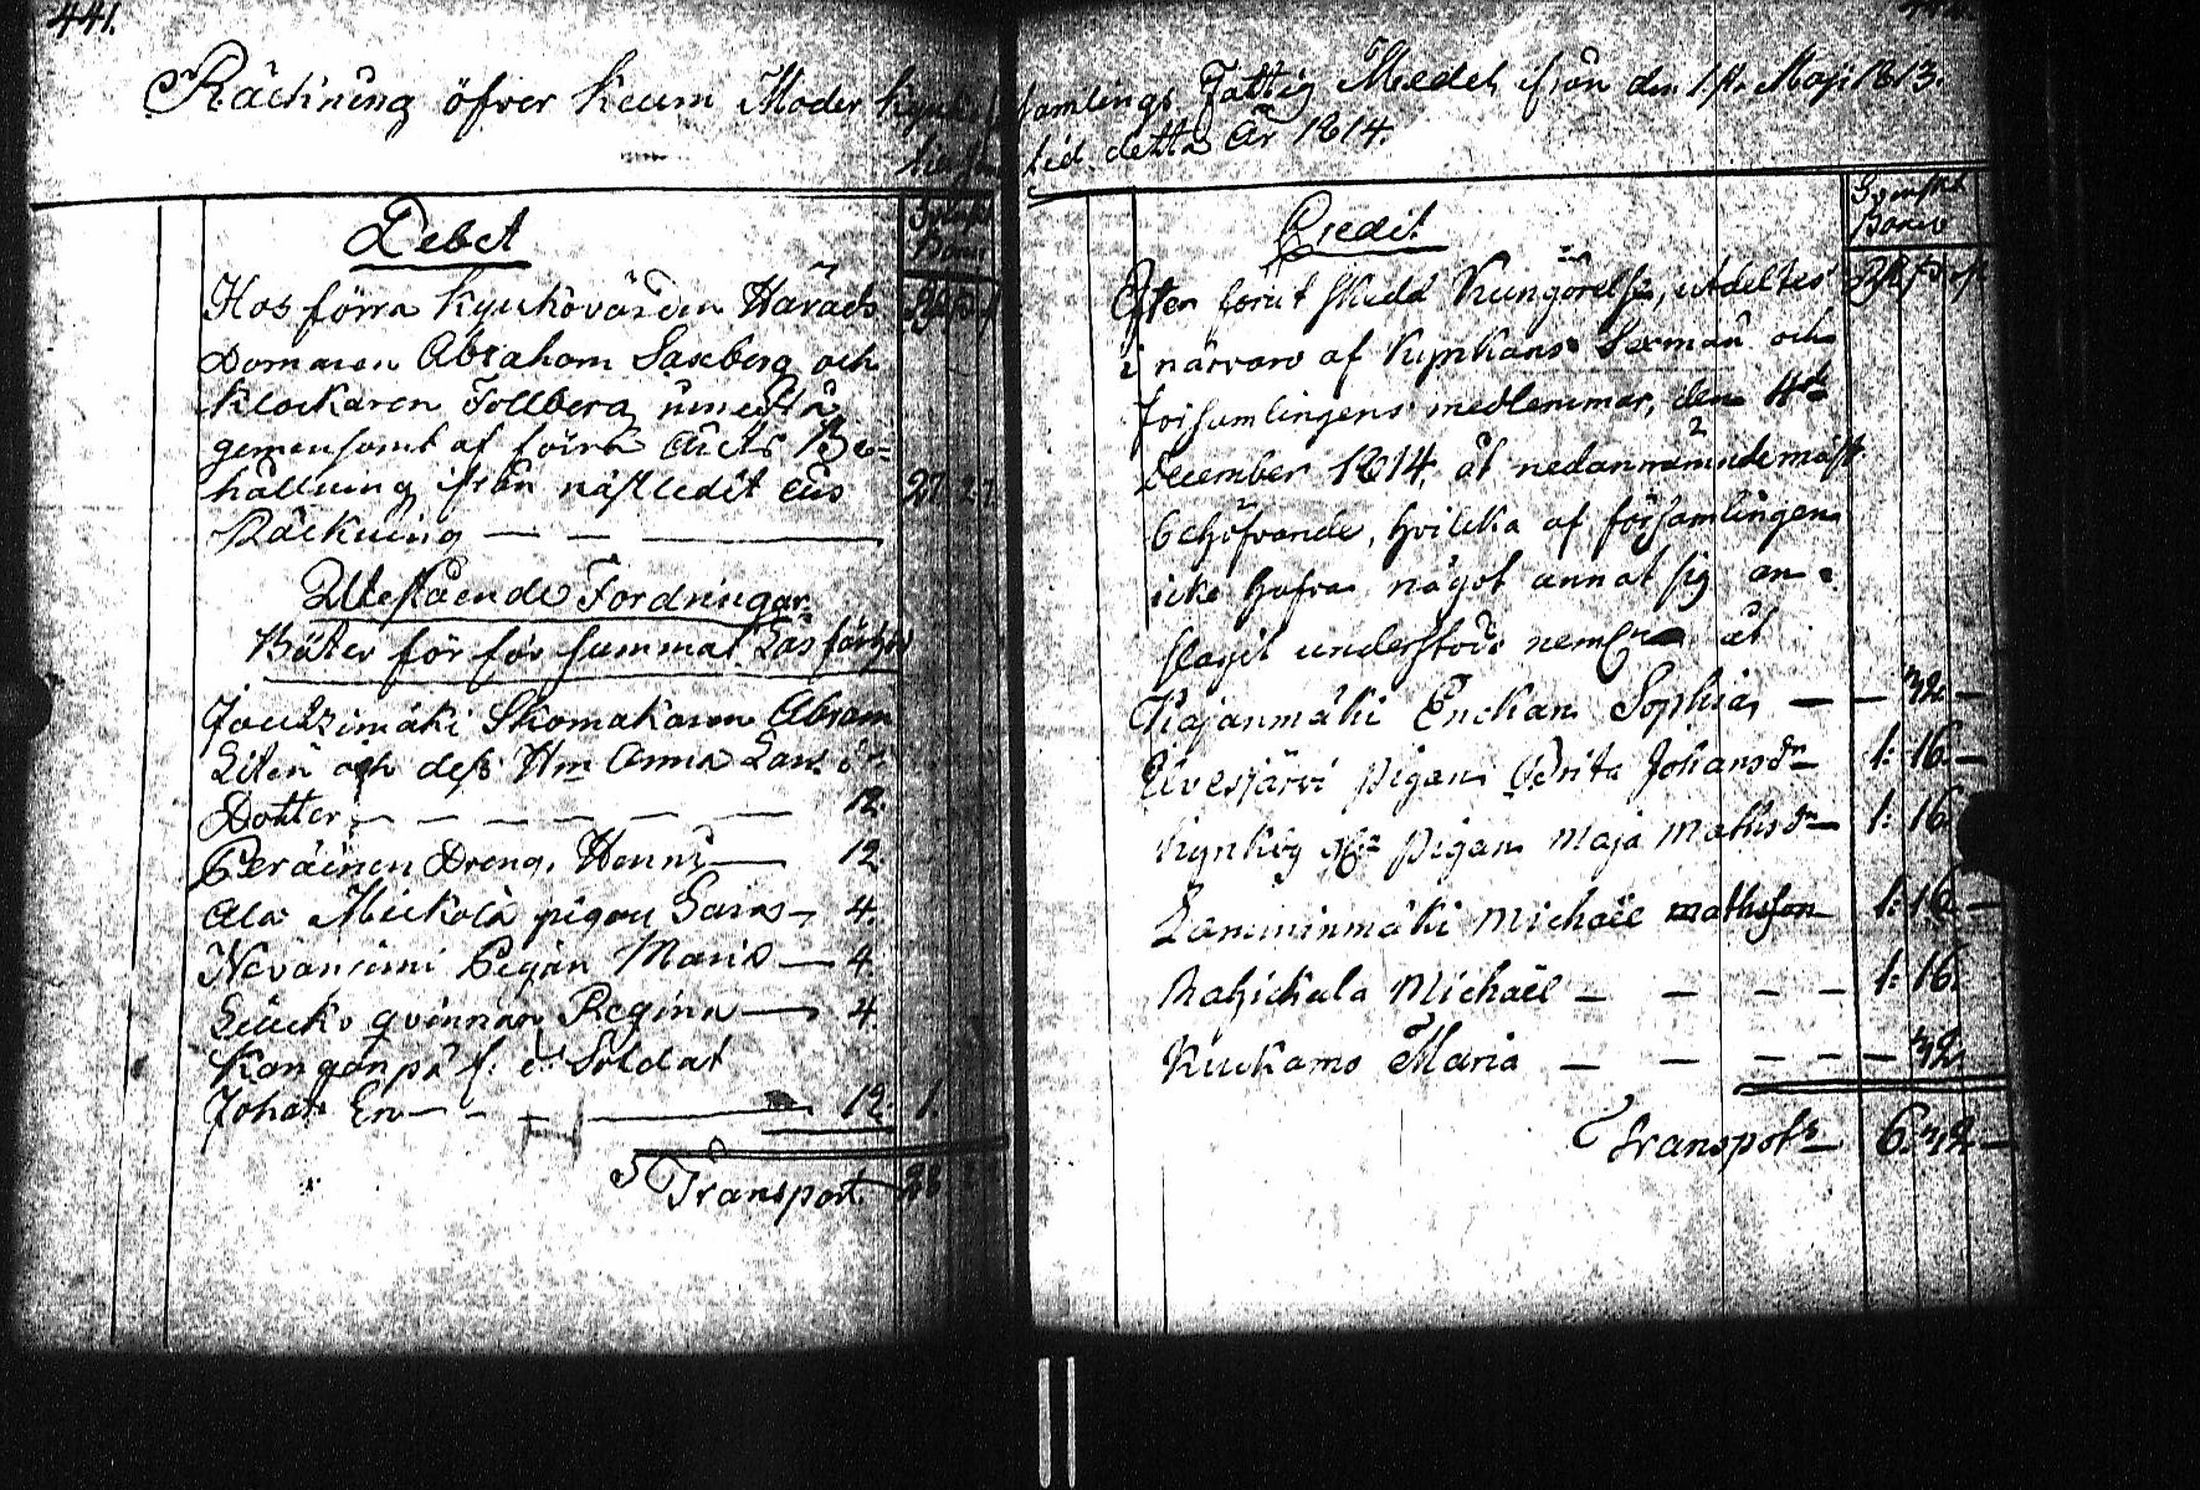 441.
Räckning öfver Keum Moder Kyrko församlings Fattig Medel ifrån den 1:sta Maji 1813.
tid detta År 1814.
Debet
Hos förra Kyrkovärden Härads
Domaren Abraham Saxberg och
Klockaren Tollberg
gemensamt af förra Årets Be=
hållning ifrån nästledit års
Räckning — — — 27
Utestående Fordringar
Böter för försummat Läsförhör
Skomakaren Abram
Litén och dess H:u Anna Lars
Dotter — — — — — 12.
Peräinen Dreng. Henric — 12.
Ala Mickola pigan Caisa — 4.
Nevanjemi Pigan Maria — 4.
qvinnan Regina — 4.
Kangånpä f. d. Soldat
Johan En — — — 12. 1.
Transport 28
Credit
Svenskt
Banco
Efter förut skedd Kungörelse, utdeltes
i närvaro af Kyrkans Sexmän och
församlingens medlemmar, den 4de
December 1814, åt nedannämnde mäst
behöfvande, hvilka af församlingen
icke hafva något annat sig an=
slagit understöd, neml. åt
Rajanmäki Enckan Sophia — — 32. —
Ulvesjärvi pigan Brita Johansdr — 1: 16. —
Kyrkby pigan Maja Mathsdr — 1: 16.
Lamminmäki Michaël Mathsson — 1: 16 —
Rahickala Michaël — — — — 1: 16.
Kuckamo Maria — — — — — 32.
Transport — 6. 32 —